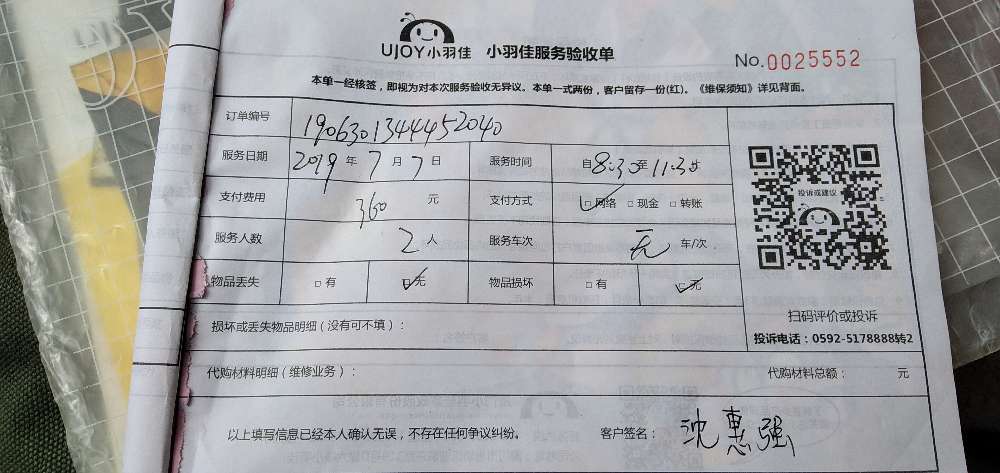 UJOY小羽佳 小羽佳服务验收单
No.0025552
本单一经核签，即视为对本次服务验收无异议。本单一式两份，客户留存一份(红)。《维保须知》详见背面。
订单编号 1906301344452040
服务日期 2019年7月7日 服务时间 自8:30至11:30
支付费用 360元 支付方式 □网络 □现金 □转账
服务人数 2人 服务车次 无 车/次
物品丢失 □有 □无 物品损坏 □有 □无
投诉或建议
扫码评价或投诉
投诉电话：0592-5178888转2
损坏或丢失物品明细（没有可不填）：
代购材料明细（维修业务）： 代购材料总额： 元
以上填写信息已经本人确认无误，不存在任何争议纠纷。 客户签名： 沈惠强